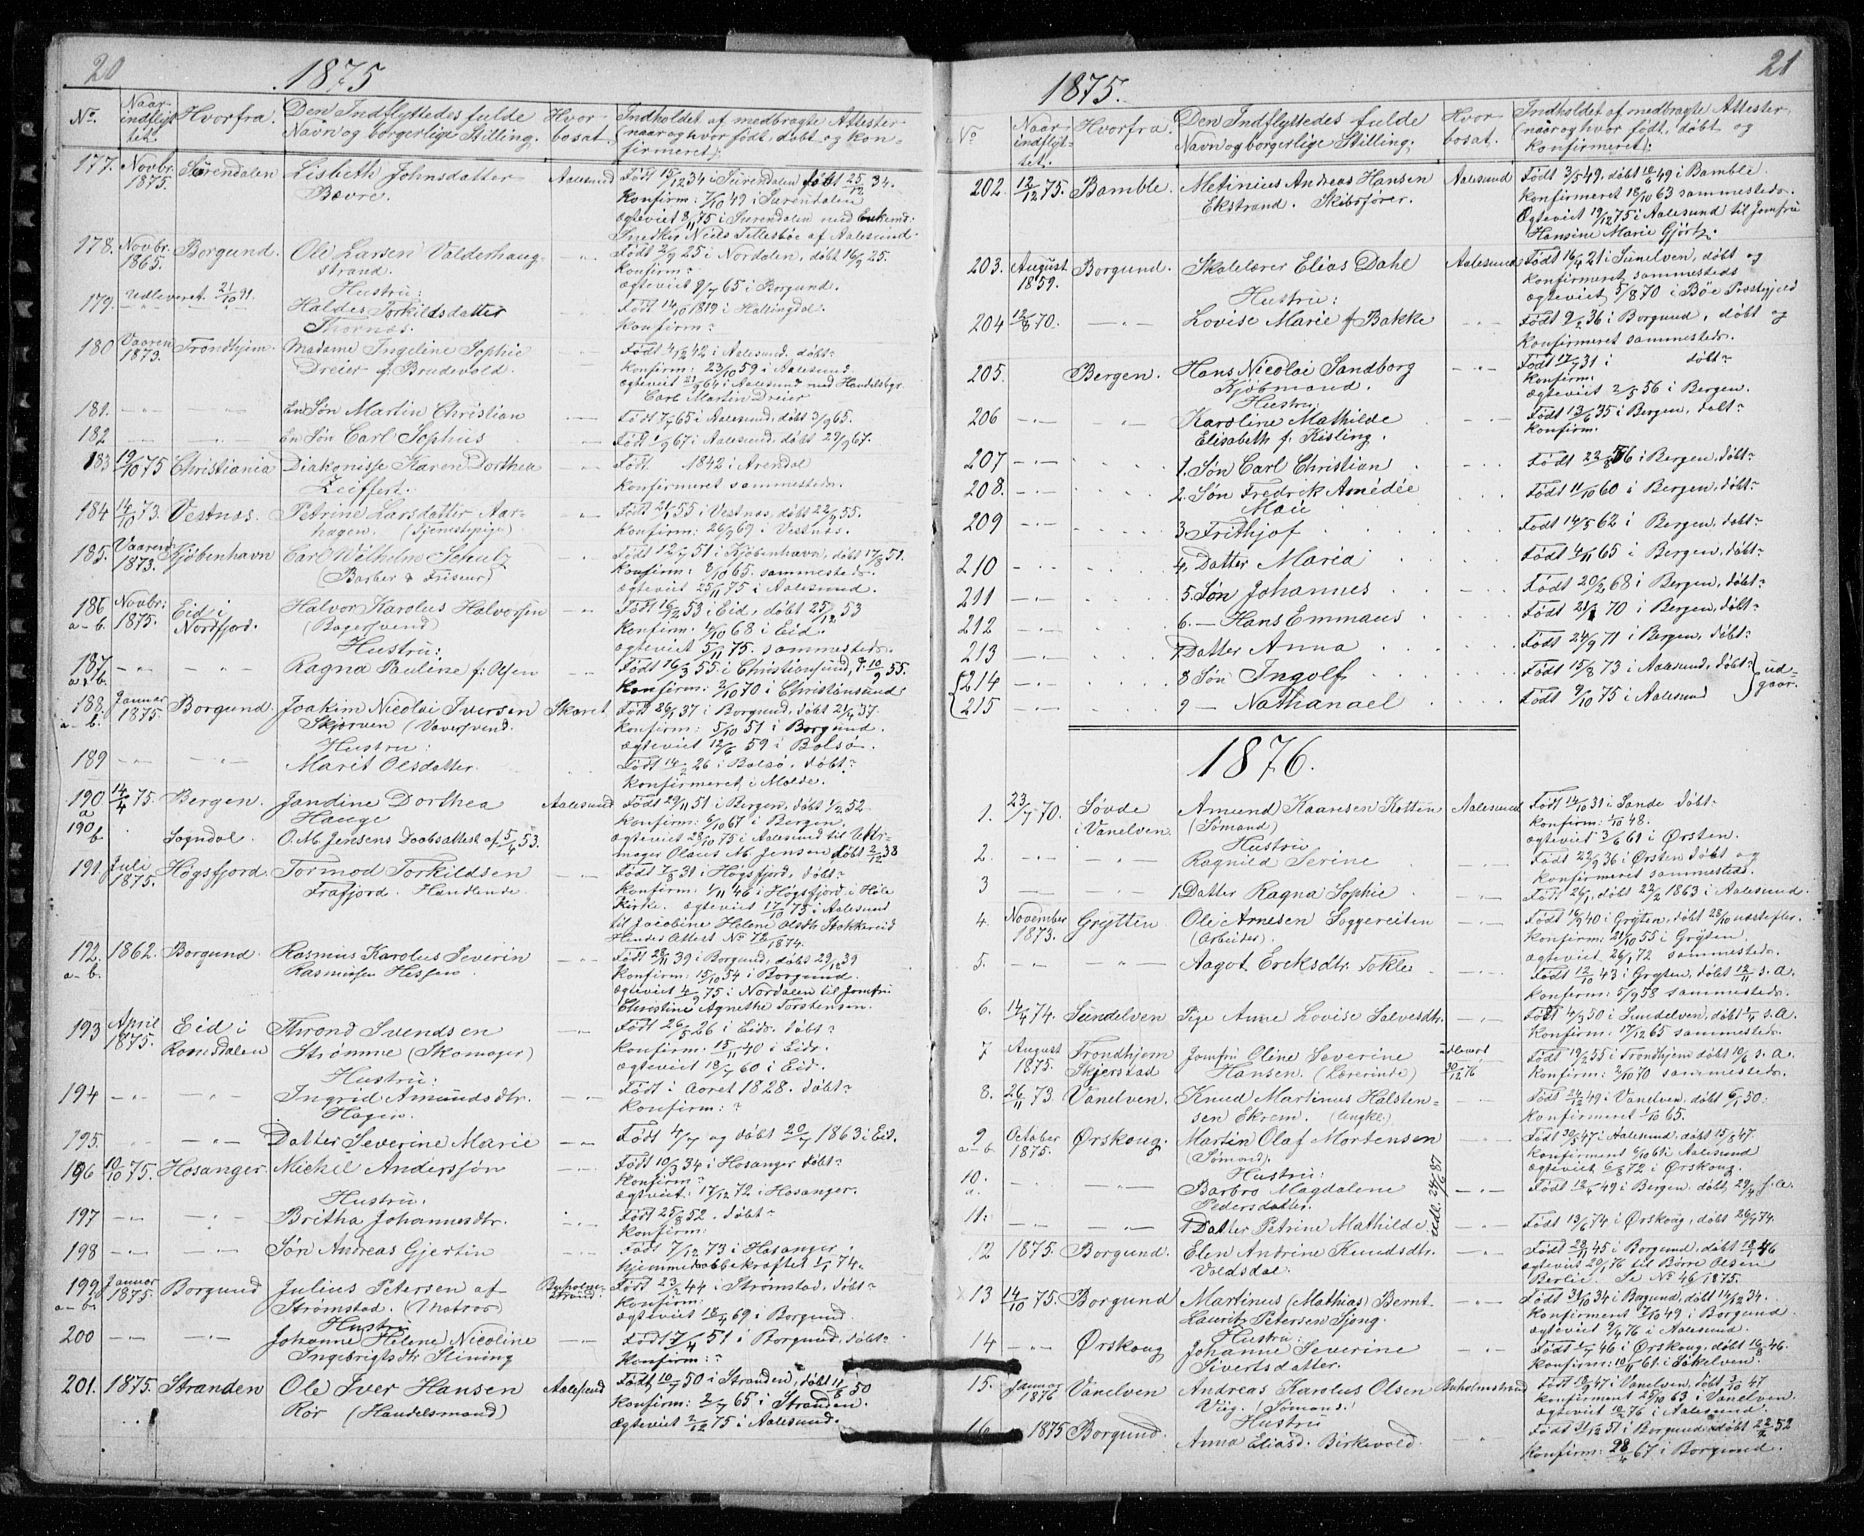 20
1875
No. Naar indflyttet. Hvorfra. Den Indflyttedes fulde Navn og borgerlige Stilling. Hvor bosat. Indholdet af medbragte Attester (naar og hvor født, døbt og konfirmeret).
177. Novbr. 1875. Surendalen Lisbeth Johnsdatter Bævre. Aalesund Født 15/12 34 i Surendalen døbt 25/12 34.
Konfirm: 7/10 49 i Surendalen
Ægteviet 8/11 75 i Surendalen med Enkemd.
Snedker Niels Tellesbøe af Aalesund.
178. Novbr. 1865. Borgund. Ole Larsen Valderhaug- strand. -"- Født 2/9 25 i Nordalen, døbt 16/9 25.
Konfirm:
Ægteviet 9/7 65 i Borgund.
Udleveret 21/10 91.
Hustru:
179. Haldes Torkildsdatter Thornæs. Født 14/10 1819 i Hallingdal.
Konfirm:?
180 Vaaren 1873. Trondhjem. Madame Ingeline Sophie Dreier f. Brudevold. Født 4/12 42 i Aalesund, døbt-
Konfirm: 23/10 59 i Aalesund
Ægteviet 21/9 64 i Aalesund med Handelsbgr.
Carl Martin Dreier
181. -"- -"- En Søn Martin Christian Født 7/7 65 i Aalesund, døbt 3/9 65.
182 -"- -"- En Søn Carl Sophus Født 1/9 67 i Aalesund, døbt 29/9 67.
183 19/10 75 Christiania Diakonisse Karen Dorthea Zeiffert. Født 1842 i Arendal
Konfirmeret sammesteds.
184 14/10 73. Vestnæs. Petrine Larsdatter Aar- hagen. (Tjenestepige) Født 21/1 55 i Vestnæs, døbt 22/4 55.
Konfirm: 26/9 69 i Vestnæs.
185. Vaaren 1873. Kjøbenhavn Carl Wilhelm Schultz (Barber & Friseur) Født 12/7 51 i Kjøbenhavn, døbt 17/8 51.
Konfirm: 8/10 65. sammesteds.
Ægteviet 25/11 75 i Aalesund.
186 a-b. Novbr: 1875. Eid i Nordfjord. Halvor Karolus Halvorsen (Bagersvend) -"- Født 16/12 53 i Eid, døbt 25/12 53
Konfirm: 4/10 68 i Eid.
Ægteviet 5/11 75. sammesteds.
Hustru:
187 a-b. -"- -"- Ragna Pauline f: Olsen Født 16/3 55 i Christiansund, d. 10/9 55.
Konfirm: 2/10 70 i Christiansund
188. a-b. Januar 1875 Borgund. Joakim Nicolai Iversen Skjorven (Væversvend. Skaret Født 26/1 37 i Borgund, døbt 21/4 37.
Konfirm: 5/10 51 i Borgund.
Ægteviet 12/6 59 i Bolsø.
Hustru:
189 -"- -"- Marit Olsdatter. Født 14/2 26 i Bolsø, døbt-
Konfirmeret i Molde.
190 a 14/4 75. Bergen. Jandine Dorthea Hauge Aalesund Født 29/11 51 i Bergen, døbt 1/2 52
Konfirm: 6/10 67 i Bergen.
190 b Sogndal O. M. Jensens Daabsattest af 5/4 53. Ægteviet 28/10 75 i Aalesund til Uhr-
mager Olaus M. Jensen døbt 2/12 38
191. Juli 1875. Høgsfjord. Tormod Torkildsen Frafjord. Handlende. Født 7/8 31 i Høgsfjord, døbt-
Konfirm: 1/11 46 i Høgsfjord i Høle
Kirke. Ægteviet 17/10 75 i Aalesund
til Jacobine Helene Olsdtr. Stokkereid
Hendes Attest No 72/1874.
192. a-b. 1862. Borgund. Rasmus Karolus Severin Rasmusen Hessen. -"- Født 28/11 39 i Borgund, døbt 29/12 39
Konfirm: 15/10 54 i Borgund.
Ægteviet 4/9 75 i Nordalen til Jomfru
Christine Agnethe Torstensen.
193 April 1875. Eid i Romsdalen Thrond Svendsen Strømme (Skomager) -"- Født 26/5 26 i Eid, døbt-
Konfirm: 15/11 40 i Eid.
Ægteviet 18/7 60 i Eid.
Hustru:
194 -"- -"- Ingrid Amundsdtr. Hagen. Født i Aaret 1828. døbt-
Konfirm:?
195. -"- Datter Severine Marie -"- Født 4/7 og døbt 20/7 1863 i Eid.
196 10/10 75. Hosanger. Nichel Anderssøn Født 10/3 34 i Hosanger døbt-
Konfirm:-
Ægteviet: 17/12 72 i Hosanger.
Hustru.
197 -"- -"- Britha Johannesdtr. Født 25/8 52. døbt-
Konfirm:
198 -"- -"- Søn Andreas Gjertin Født 7/12 73 i Hosanger.
hjemmedaab bekræftet 1/1 74.
199 a-b. Januar 1875 Borgund Julius Petersen af Strømstad. (Matros) Buholmstrand. Født 23/2 44 i Strømstad, døbt-
Konfirm:
Ægteviet 18/4 69 i Borgund.
Hustru
200 -"- -"- Johanne Helene Nicoline Ingebrigtsdtr. Slining -"- Født 7/4 51 i Borgund, døbt-
Konfirm:?
201. 1875. Stranden Ole Iver Hansen Rør (Handelsmand) Aalesund Født 10/5 50 i Stranden, døbt 11/8 50
Konfirm: 2/7 65 i Stranden.
Ægteviet 2/12 75 i Aalesund.
21
1875.
No Naar indflyttet. Hvorfra. Den Indflyttedes fulde Navn og borgerlige Stilling. Hvor bosat. Indholdet af medbragte Attester (naar og hvor født, døbt og konfirmeret).
202. 12/12 75. Bamble. Metinius Andreas Hansen Ekstrand. Skibsfører. Aalesund Født 3/5 49, døbt 10/6 49 i Bamble.
Konfirmeret 18/10 63 sammesteds.
Ægteviet 19/12 75 i Aalesund til Jomfru
Hansine Marie Gjørtz.
203. August 1859. Borgund. Skolelærer Elias Dahl Aalesund Født 16/4 21 i Sunelven, døbt og
Konfirmeret sammesteds
Ægteviet 5/8 70 i Bøe Præstegjeld
Hustru:
204 12/8 70. -"- Lovise Marie f Bakke Født 9/2 36 i Borgund, døbt og
Konfirmeret sammesteds.
205. Bergen. Hans Nicolai Sandborg Kjøbmand. -"- Født 17/7 31 i døbt-
Konfirm:
Ægteviet 2/5 56 i Bergen.
Hustru:
206 -"- Karoline Mathilde Elisabeth f. Kisling. Født 13/6 35 i Bergen, døbt-
Konfirm.
207 -"- 1. Søn Carl Christian Født 23/8 56 i Bergen, døbt-
208. -"- 2. Søn Fredrik Amédée Moe Født 11/10 60 i Bergen, døbt-
209 -"- 3. Frithjof Født 14/5 62 i Bergen, døbt-
210 -"- 4. Datter Maria Født 4/11 65 i Bergen, døbt-
211 -"- 5. Søn Johannes Født 20/2 68 i Bergen, døbt-
212 -"- 6. — Hans Emmaus Født 21/1 70 i Bergen, døbt-
213 -"- 7 Datter Anna Født 24/9 71 i Bergen, døbt-
214 -"- 8 Søn Ingolf Født 15/8 73 i Aalesund, døbt-
215 -"- 9 — Nathanael Født 9/10 75 i Aalesund
udgaar.
1876.
1. 23/7 70. Søvde i Vanelven. Amund Kaarsen Ketten (Sømand) Aalesund Født 14/10 31 i Sande døbt-
Konfirm: 1/10 48.
Ægteviet 3/6 61 i Ørsten.
Hustru
2. -"- -"- Ragnild Serine Født 22/9 36 i Ørsten døbt og
Konfirmeret sammesteds.
3 -"- -"- 1. Datter Ragna Sophie Født 26/1, døbt 22/2 1863 i Aalesund.
4. November 1873. Grytten Ole Arnesen Soggereiten (Arbeider). Født 16/9 40 i Gryten, døbt 28/10 næstefter.
Konfirm: 21/10 55 i Gryten.
Ægteviet 26/1 72 sammesteds.
5. -"- -"- Aagot Eriksdtr. Tokle Født 12/10 43 i Gryten, døbt 12/11 s. A.
Konfirm: 5/9 58 sammesteds.
6. 14/4 74. Sundelven Pige Anne Lovise Salvesdtr. -"- Født 4/3 50 i Sundelven, døbt 1/4 s. A.
Konfirm: 17/12 65 sammesteds.
7 August 1875. Trondhjem Skjerstad Jomfru Oline Severine Hansen. (Lærerinde) udlevert 30/12 76 Født 19/2 55 i Trondhjem døbt 10/6 s. A.
Konfirm: 2/10 70 sammesteds.
8. 26/11 73. Vanelven. Knud Martinus Halsten- sen Ekrem. (Ungkl.) -"- Født 24/12 49 i Vanelven, døbt 6/1 50.
Konfirmeret 1/10 65.
9 a-b October 1875. Ørskoug. Martin Olaf Mortensen (Sømand). Født 30/5 47 i Aalesund, døbt 15/8 47.
Konfirment 6/10 61 i Aalesund
Ægteviet 6/8 72 i Ørskoug.
Hustru:
10. a. -"- -"- Barbro Magdalene Pedersdatter. -"- Født 12/4 49 i Bergen, døbt 29/4 s. A.
udl. 24/6 87
11. -"- -"- 1 Datter Petrine Mathilde Født 13/6 74 i Ørskoug, døbt 26/7 74.
12 1875. Borgund. Elen Andrine Knudsdtr. Voldsdal. Født 28/11 45 i Borgund, døbt 18/1 46
Ægteviet 29/1 76 til Børre Olsen
Berlie. Se No 46 1875.
13 14/10 75. Borgund Martinus (Mathias) Bernt. Laurits Petersen Sjong. -"- Født 31/10 34 i Borgund, døbt 14/12 34.
Konfirment 7/10 49 i Borgund.
Ægteviet 9/4 76 i Aalesund.
Hustru:
14 -"- Ørskoug Johanne Severine Sivertsdatter. Født 5/7 46 i Ørskoug, døbt 16/8 46.
Konfirm: 10/11 61 i Søkelven.
15. Januar 1876 Vanelven. Andreas Karolus Olsen Viig. (Sømand.) Buholmstrand Født 18/9 47 i Vanelven, døbt 3/10 47
Konfirment 25/10 63 i Vanelven.
Ægteviet 10/2 76 i Aalesund.
Hustru
16 1875 Borgund. Anna Eliasd. Birkevold. -"- Født 31/12 51 i Borgund, døbt 22/2 52
Konfirm: 28/4 67 i Borgund.